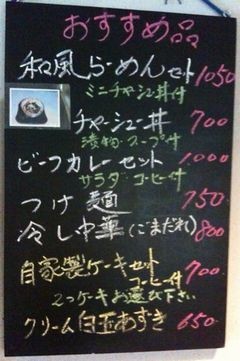 おすすめ品
和風らーめんセット 1050
ミニチャーシュー丼付
チャーシュー丼 700
漬物・スープ付
ビーフカレーセット 1000
サラダ コーヒー付
つけ麺 750
冷し中華(ごまだれ) 800
自家製ケーキセット 700
コーヒー付
2つケーキお選び下さい
クリーム白玉あずき 650